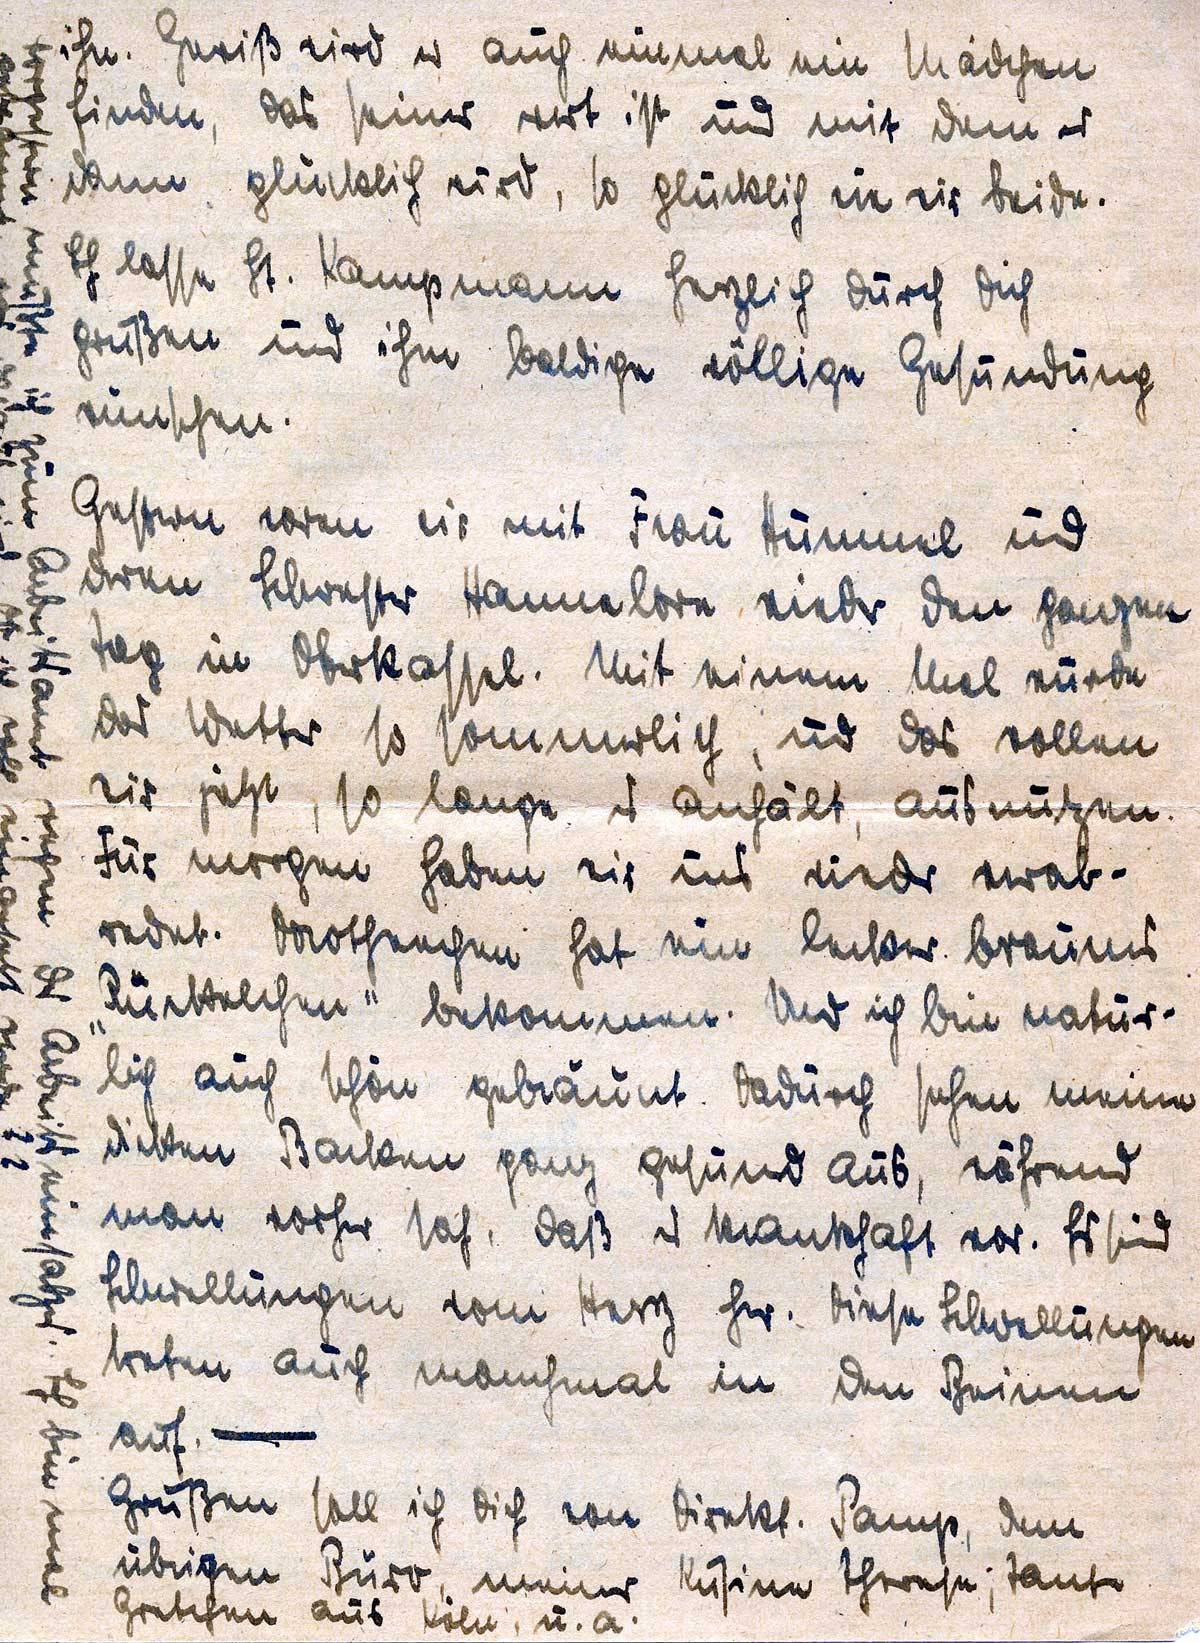 ihn. Gewiß wird er auch einmal ein Mädchen
finden, das seiner wert ist und mit dem er
dann glücklich wird, so glücklich wie wir beide.
Ich lasse Hr. Kampmann herzlich durch Dich
grüßen und ihm baldige völlige Gesundung
wünschen.
Gestern waren wir mit Frau Hummel und
deren Schwester Hannelore wieder den ganzen
Tag in Oberkassel. Mit einem Mal wurde
das Wetter so sommerlich, und das wollen
wir jetzt, so lange es anhält, ausnutzen.
Für morgen haben wir uns wieder verab-
redet. Dorotheechen hat ein lecker braunes
„Rückelchen" bekommen. Und ich bin natür-
lich auch schön gebräunt. Dadurch sehen meine
dicken Backen ganz gesund aus, während
man vorher sah, daß es krankhaft war. Es sind
Schwellungen vom Herz her. Diese Schwellungen
treten auch manchmal in den Beinen
auf. —
Grüßen soll ich Dich von Direkt. Pamp, dem
übrigen Büro, meiner Kusine Therese, Tante
Gretchen aus Köln, u. a.
Vorgestern mußte ich zum Arbeitsamt wegen des Arbeitseinsatzes. Ich bin mal